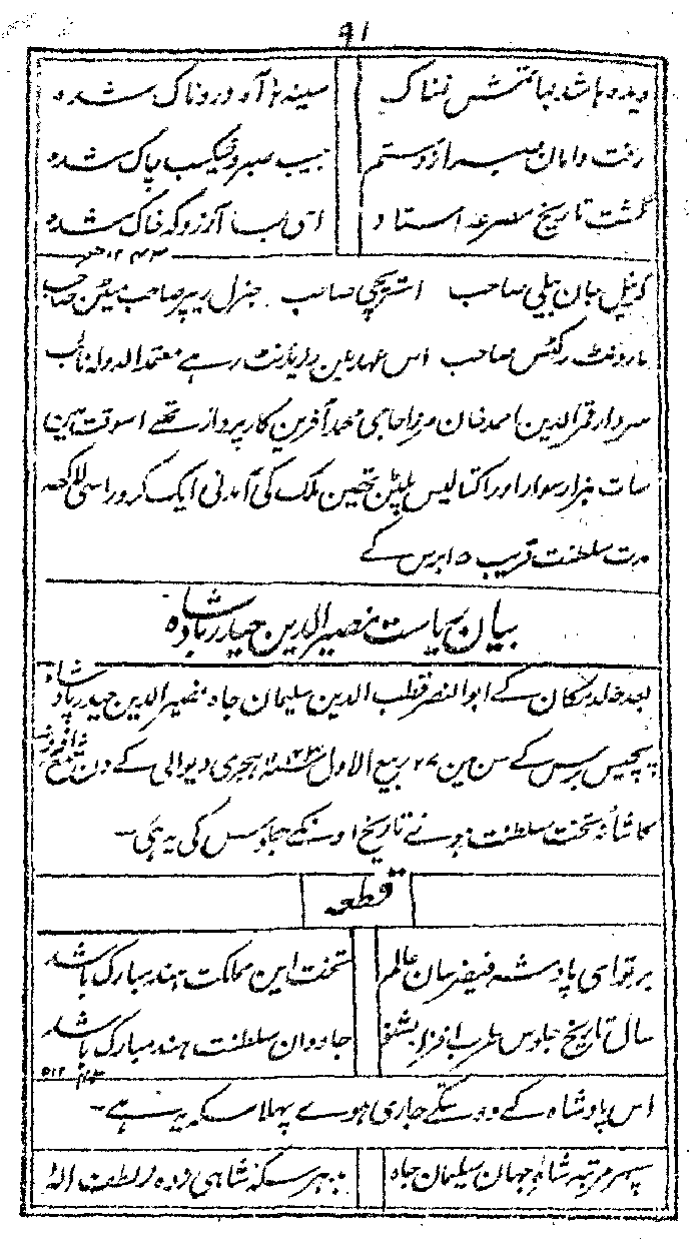 ۹۱
دیده باشد بماتمش نمناک سینه با آه دردناک شده
رفت دامان صبر از دستم جیب صبر و شکیب پاک شده
گشت تاریخ مصرعه استاد ای بسا آرزو که خاک شده
۱۲۴۳ هجری
کرنیل جان بیلی صاحب استریچی صاحب جنرل ریپر صاحب صاحب
مارڈنٹ رکٹس صاحب اس عہد مین رزیڈنٹ رہے معتمد الدولہ نائب
سردار قمر الدین احمد خان مرزا حاجی محمد آفرین کارپرداز تھے اسوقت مین
سات ہزار سوار اور اکتالیس پلٹن تھین ملک کی آمدنی ایک کرور اسی لاکھ
مدت سلطنت قریب ۱۵ برس کے
بیان ریاست نصیر الدین حیدر بادشاہ
بعد خلد مکان کے ابو النصر قطب الدین سلیمان جاہ نصیر الدین حیدر پادشاہ
پچیس برس کے سن مین ۲۷ ربیع الاول ۱۲۴۳ ہجری دیوالی کے دن شمع افروز
کاشانہ تخت سلطنت ہوئے تاریخ اونکے جلوس کی یہ ہی۔
قطعہ
بر تو ای پادشه فیض رسان عالم تخت این مملکت هند مبارک باشد
سال تاریخ جلوس طرب افزا بشنو جاودان سلطنت هند مبارک باشد
۱۲۴۳
اس بادشاہ کے دو سکے جاری ہوے پہلا سکہ یہ ہے۔
سپهر مرتبه شاه جهان سلیمان جاه بدهر سکه شاهی زده ز لطف اله